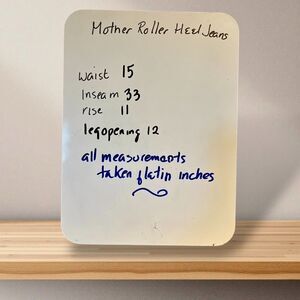 Mother Roller Heel Jeans
waist 15
Inseam 33
rise 11
legopening 12
all measuremants
taken flatin inches